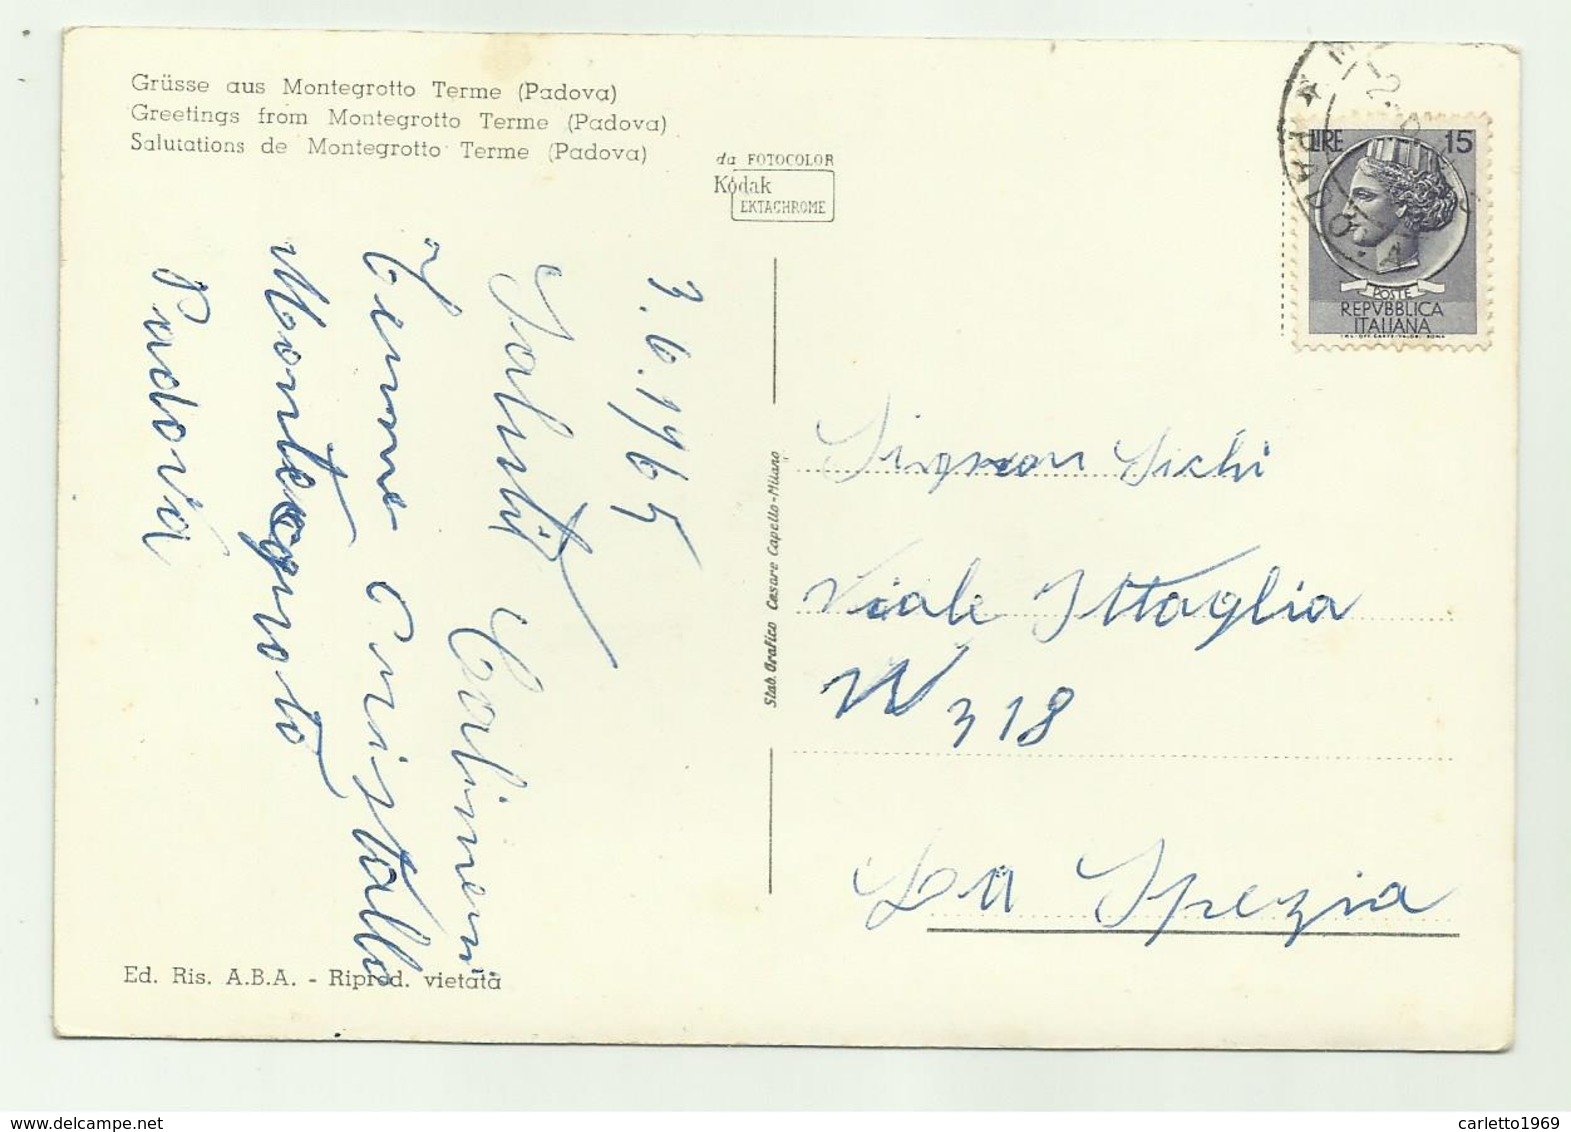 Grüsse aus Montegrotto Terme (Padova)
Greetings from Montegrotto Terme (Padova)
Salutations de Montegrotto Terme (Padova)
da FOTOCOLOR
Kodak
EKTACHROME
3.6.1965
Saluti
Terme Cristallo
Padova
Ed. Ris. A.B.A. - Riprod. vietata
Stab. Grafico Cesare Capello-Milano
LIRE 15
POSTE
REPVBBLICA
ITALIANA
IST. POL. CARTE VALORI ROMA
Sichi
Viale Ittaglia
N 318
La Spezia
carletto1969